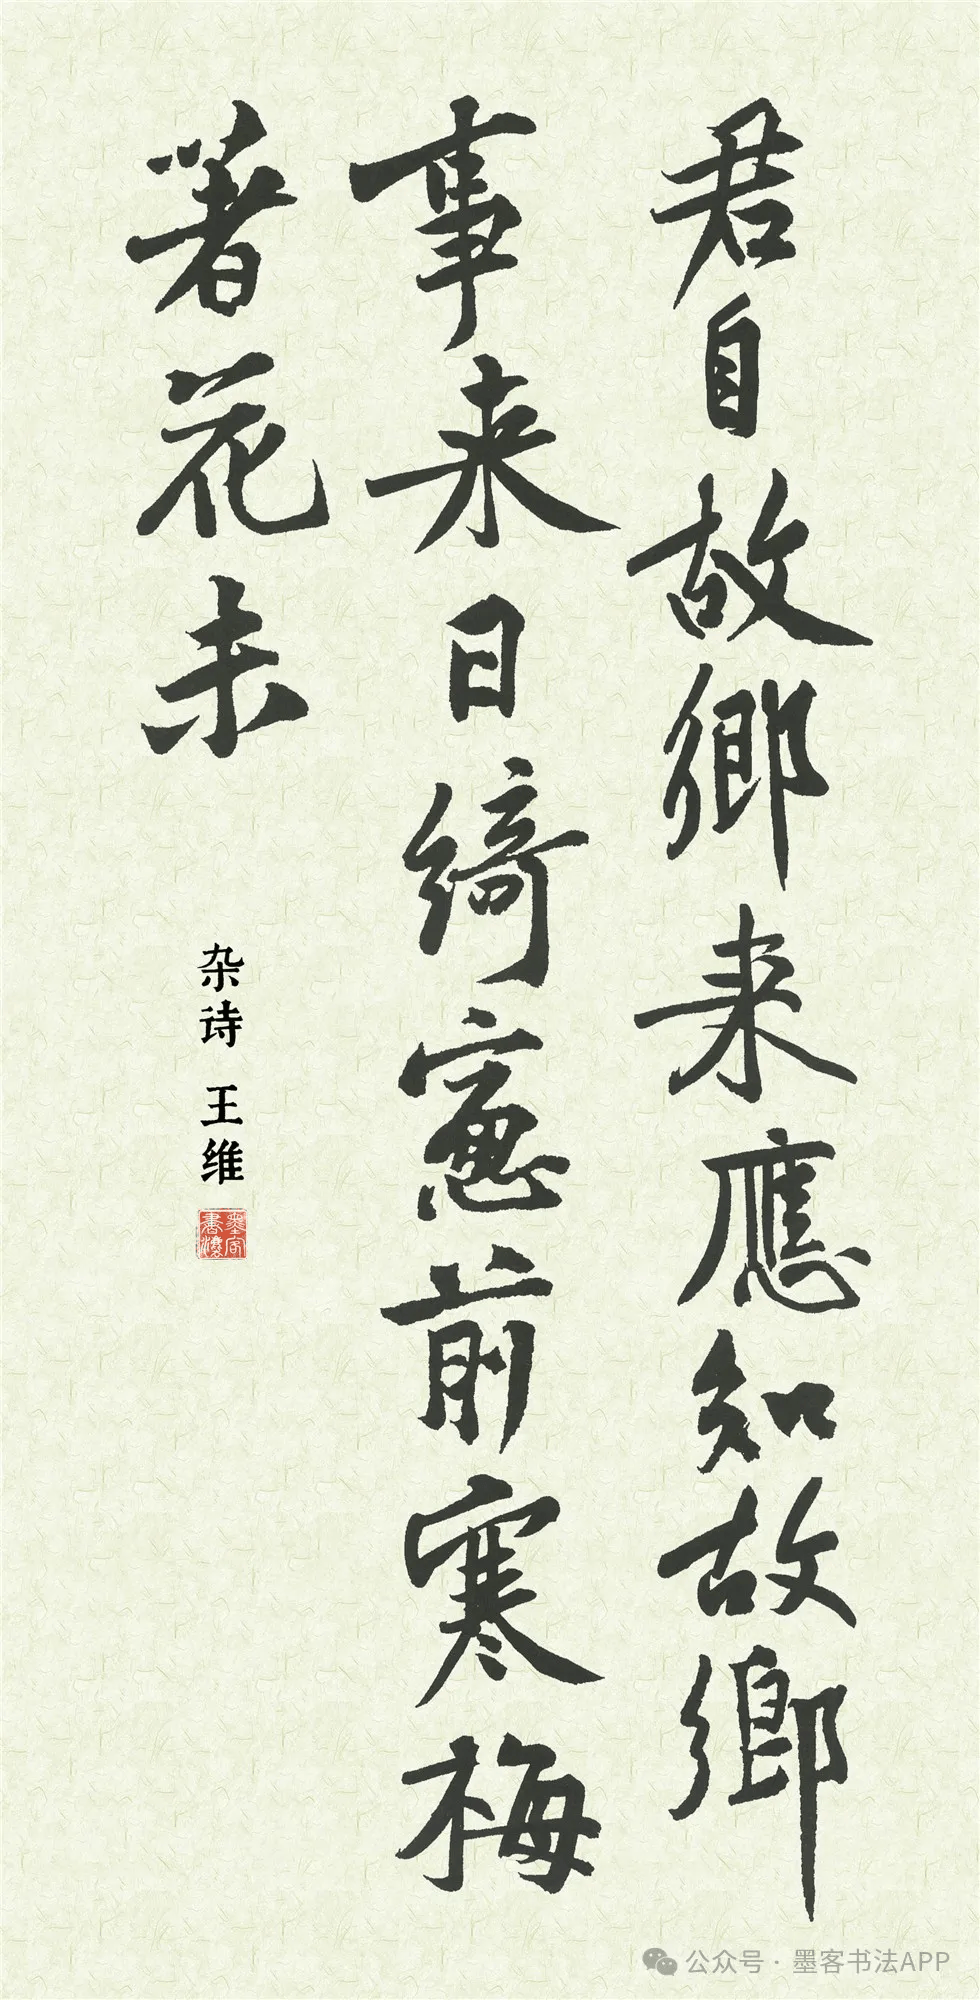 君自故鄉来應知故鄉
事来日綺窻前寒梅
著花未
杂诗 王维
墨客書法
公众号·墨客书法APP